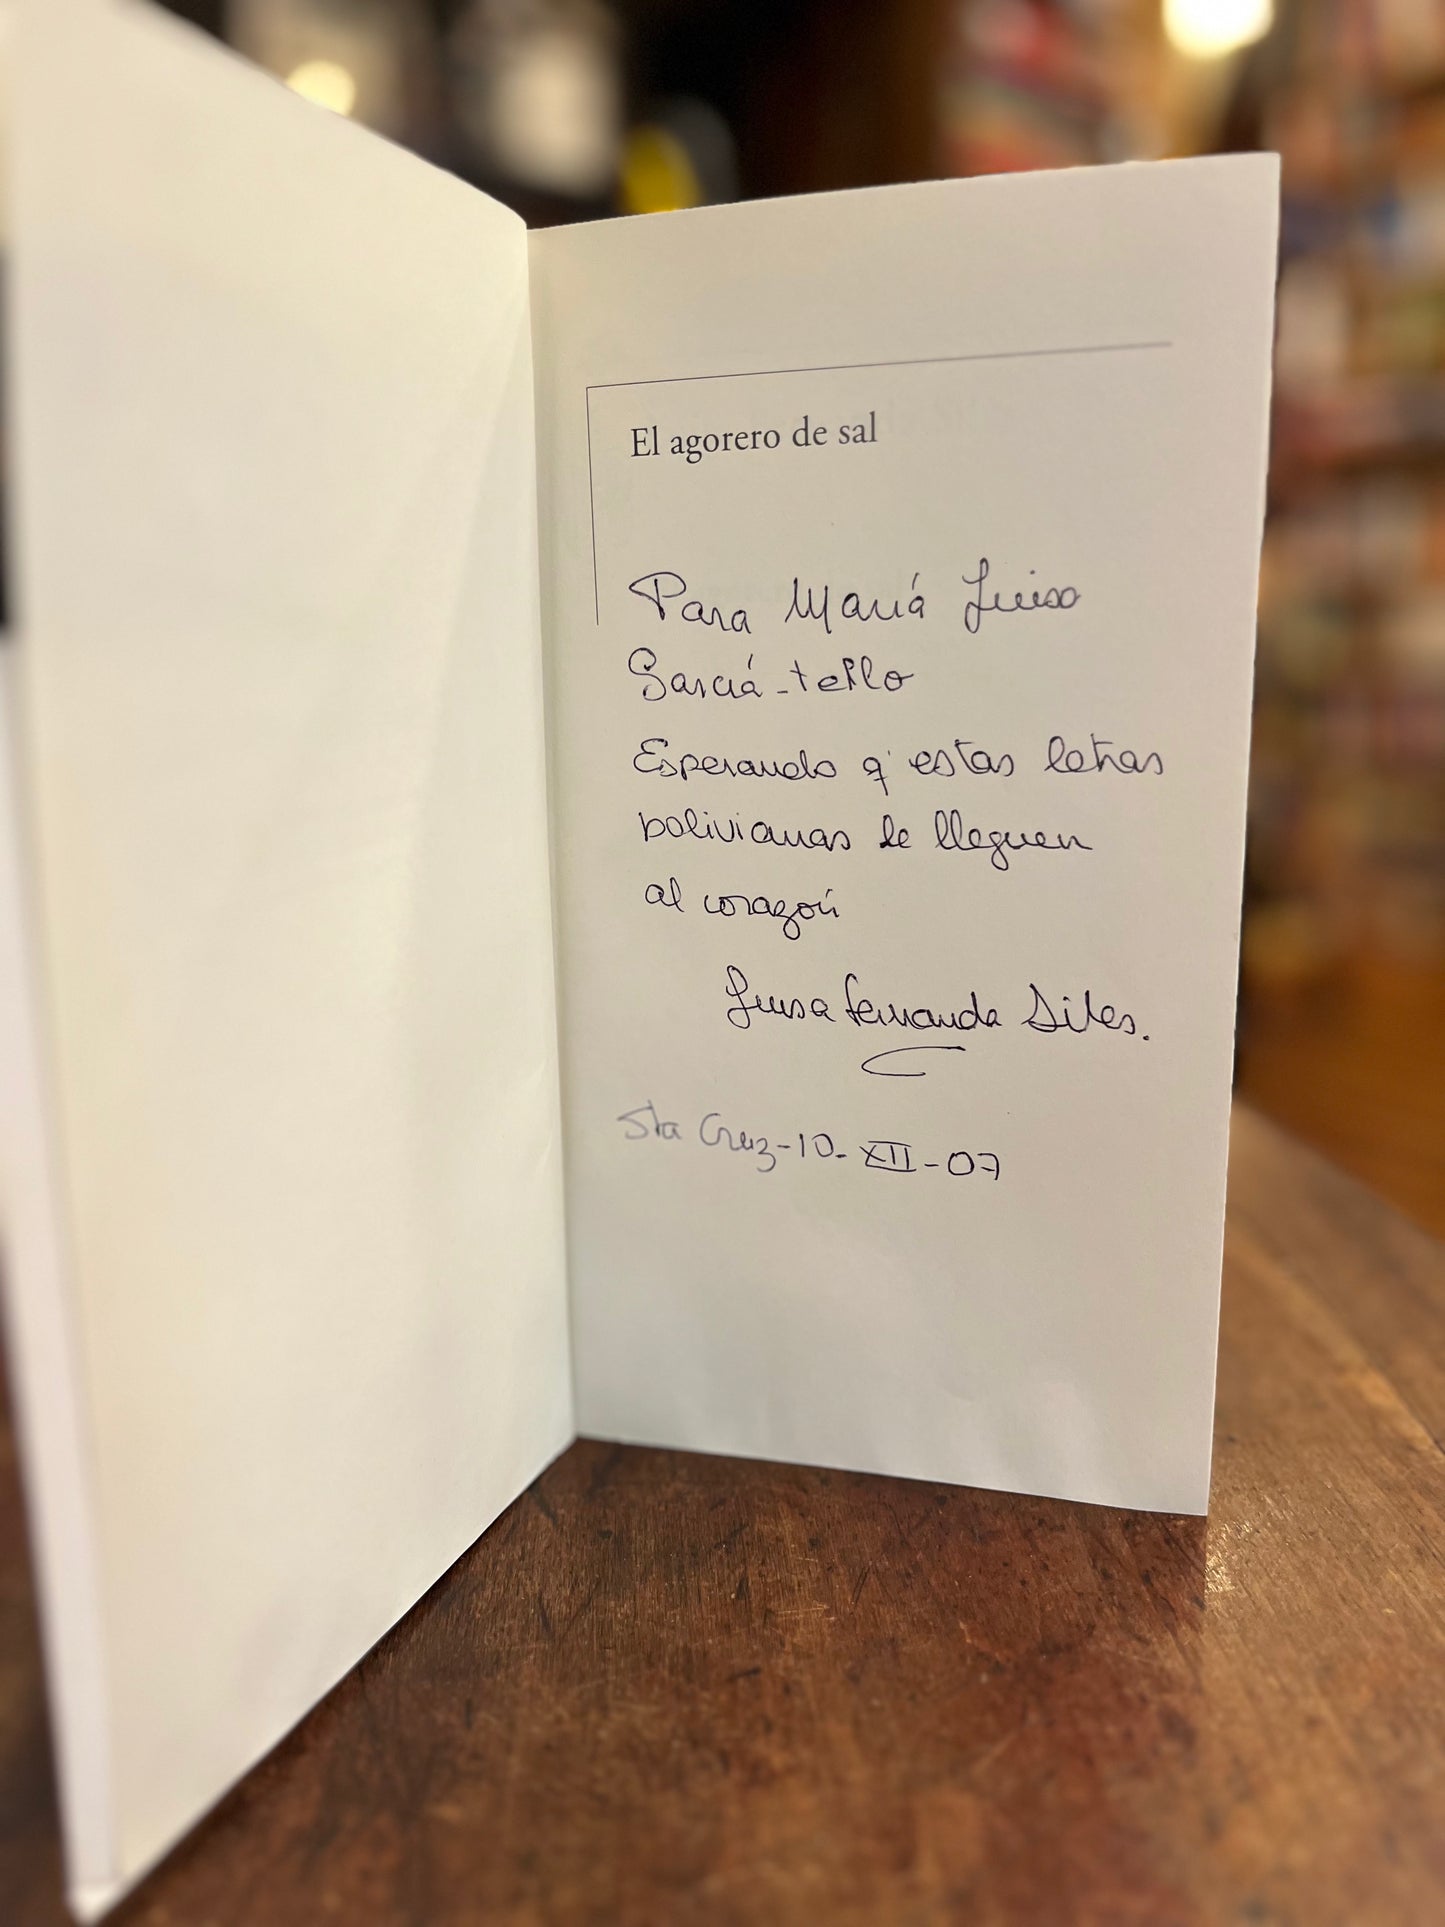 El agorero de sal
Para María Luisa
García-tello
Esperando q' estas letras
bolivianas le lleguen
al corazón
Luisa Fernanda Siles.
Sta Cruz-10-XII-07